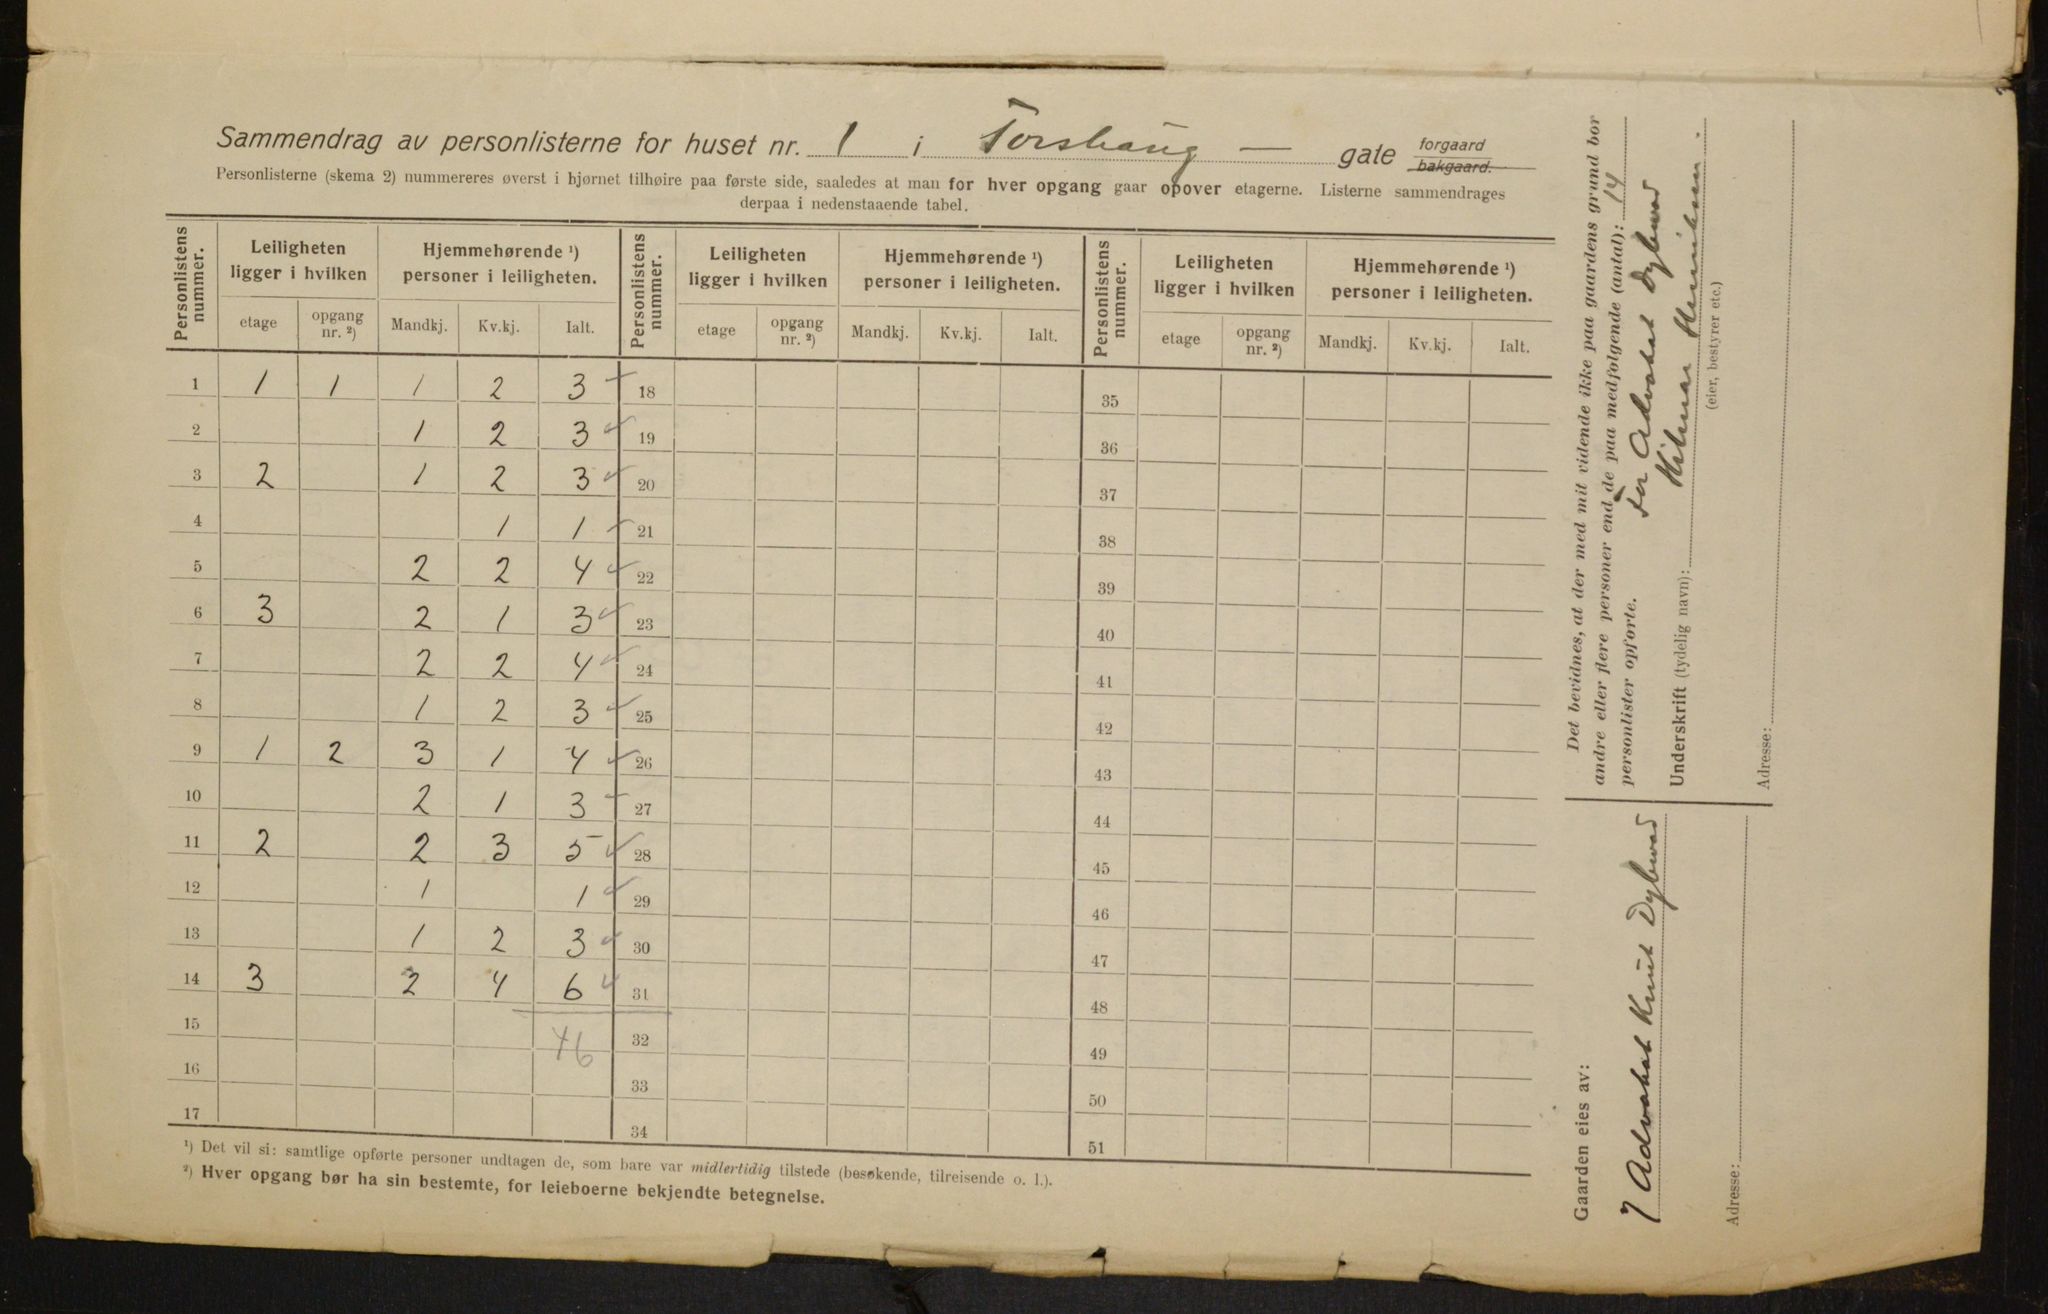 Sammendrag av personlisterne for huset nr. 1 i Torshaug — gate forgaard bakgaard.
Personlisterne (skema 2) nummereres øverst i hjørnet tilhøire paa første side, saaledes at man for hver opgang gaar opover etagerne. Listerne sammendrages
derpaa i nedenstaaende tabel.
Personlistens nummer. Leiligheten ligger i hvilken Hjemmehørende ¹) personer i leiligheten. Personlistens nummer. Leiligheten ligger i hvilken Hjemmehørende ¹) personer i leiligheten. Personlistens nummer. Leiligheten ligger i hvilken Hjemmehørende ¹) personer i leiligheten.
etage opgang nr. ²) Mandkj. Kv.kj. Ialt. etage opgang nr. ²) Mandkj. Kv.kj. Ialt. etage opgang nr. ²) Mandkj. Kv.kj. Ialt.
1 1 1 1 2 3 18 35
2 1 2 3 19 36
3 2 1 2 3 20 37
4 1 1 21 38
5 2 2 4 22 39
6 3 2 1 3 23 40
7 2 2 4 24 41
8 1 2 3 25 42
9 1 2 3 1 4 26 43
10 2 1 3 27 44
11 2 2 3 5 28 45
12 1 1 29 46
13 1 2 3 30 47
14 3 2 4 6 31 48
15 46 32 49
16 33 50
17 34 51
¹) Det vil si: samtlige opførte personer undtagen de, som bare var midlertidig tilstede (besøkende, tilreisende o. l.).
²) Hver opgang bør ha sin bestemte, for leieboerne bekjendte betegnelse.
Det bevidnes, at der med mit vidende ikke paa gaardens grund bor
andre eller flere personer end de paa medfølgende (antal): 14
personlister opførte.
For Advokat Dybwad
Underskrift (tydelig navn): Hilmar Henriksen.
(eier, bestyrer etc.)
Adresse:
Gaarden eies av:
Advokat Knut Dybwad
Adresse: